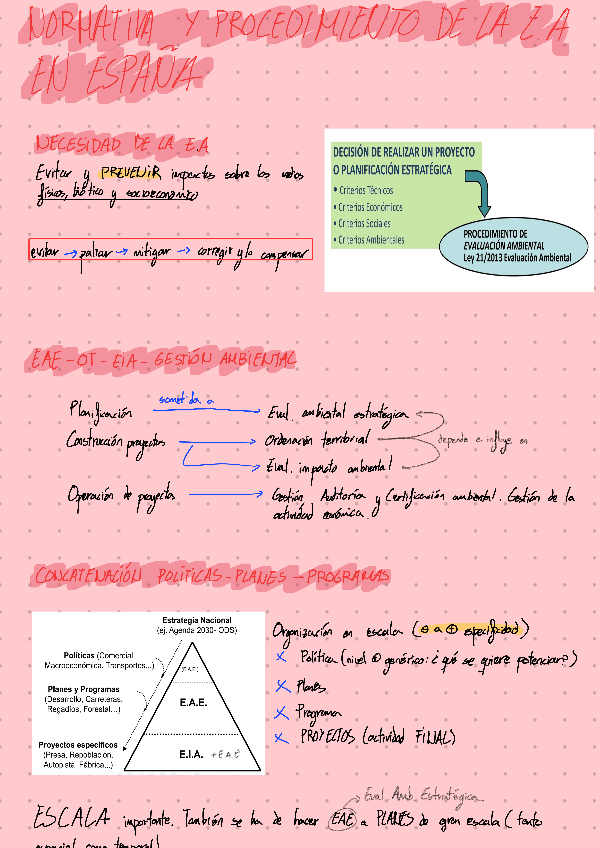 NORMATIVA Y PROCEDIMIENTO DE LA E.A
EN ESPAÑA
NECESIDAD DE LA E.A
Evitar y PREVENIR impactos sobre los medios
físicos, biótico y socioeconómico
evitar → paliar → mitigar → corregir y/o compensar
DECISIÓN DE REALIZAR UN PROYECTO
O PLANIFICACIÓN ESTRATÉGICA
• Criterios Técnicos
• Criterios Económicos
• Criterios Sociales
• Criterios Ambientales
PROCEDIMIENTO DE
EVALUACIÓN AMBIENTAL
Ley 21/2013 Evaluación Ambiental
EAE - OT - EIA - GESTIÓN AMBIENTAL
Planificación sometida a Eval. ambiental estratégica
Construcción proyectos Ordenación territorial depende e influye en
Eval. impacto ambiental
Operación de proyectos Gestión Auditoría y Certificación ambiental. Gestión de la
actividad económica
CONCATENACIÓN POLÍTICAS - PLANES - PROGRAMAS
Estrategia Nacional
(ej. Agenda 2030- ODS)
Políticas (Comercial,
Macroeconómica, Transportes...)
(E.A.E.)
Planes y Programas
(Desarrollo, Carreteras,
Regadíos, Forestal...)
E.A.E.
Proyectos específicos
(Presa, Repoblación,
Autopista, Fábrica...)
E.I.A. + E.A.E
Organización en escala (⊖ a ⊕ especifidad)
× Política (nivel ⊕ genérico: ¿qué se quiere potenciar?)
× Planes
× Programa
× PROYECTOS (actividad FINAL)
Eval. Amb. Estratégica
ESCALA importante. También se ha de hacer EAE a PLANES de gran escala (tanto
espacial como temporal)